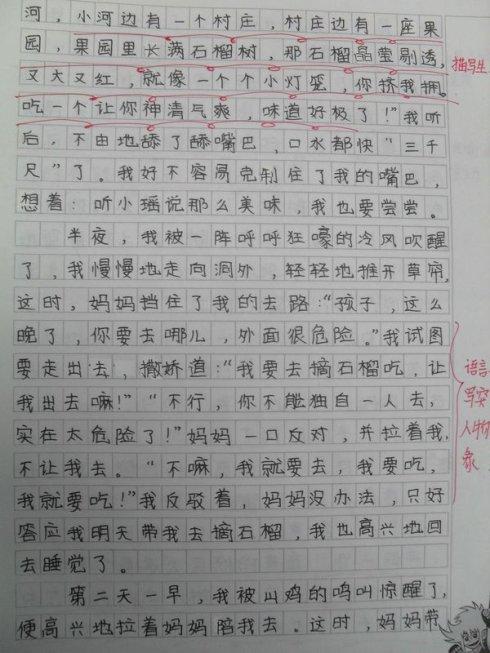 河，小河边有一个村庄，村庄边有一座果
园，果园里长满石榴树，那石榴晶莹剔透，
又大又红，就像一个个小灯笼，你挤我拥。
吃一个让你神清气爽，味道好极了！”我听
后，不由地舔了舔嘴巴，口水都快“三千
尺”了。我好不容易克制住了我的嘴巴，
想着：听小瑶说那么美味，我也要尝尝。
半夜，我被一阵呼呼狂嚎的冷风吹醒
了，我慢慢地走向洞外，轻轻地推开草帘，
这时，妈妈挡住了我的去路：“孩子，这么
晚了，你要去哪儿，外面很危险。”我试图
要走出去，撒娇道：“我要去摘石榴吃，让
我出去嘛！”“不行，你不能独自一人去，
实在太危险了！”妈妈一口反对，并拉着我，
不让我去。“不嘛，我就要去，我要吃，
我就要吃！”我反驳着，妈妈没办法，只好
答应我明天带我去摘石榴，我也高兴地回
去睡觉了。
第二天一早，我被山鸡的鸣叫惊醒了，
便高兴地拉着妈妈陪我去。这时，妈妈带
描写生
语言
写突
人物
象